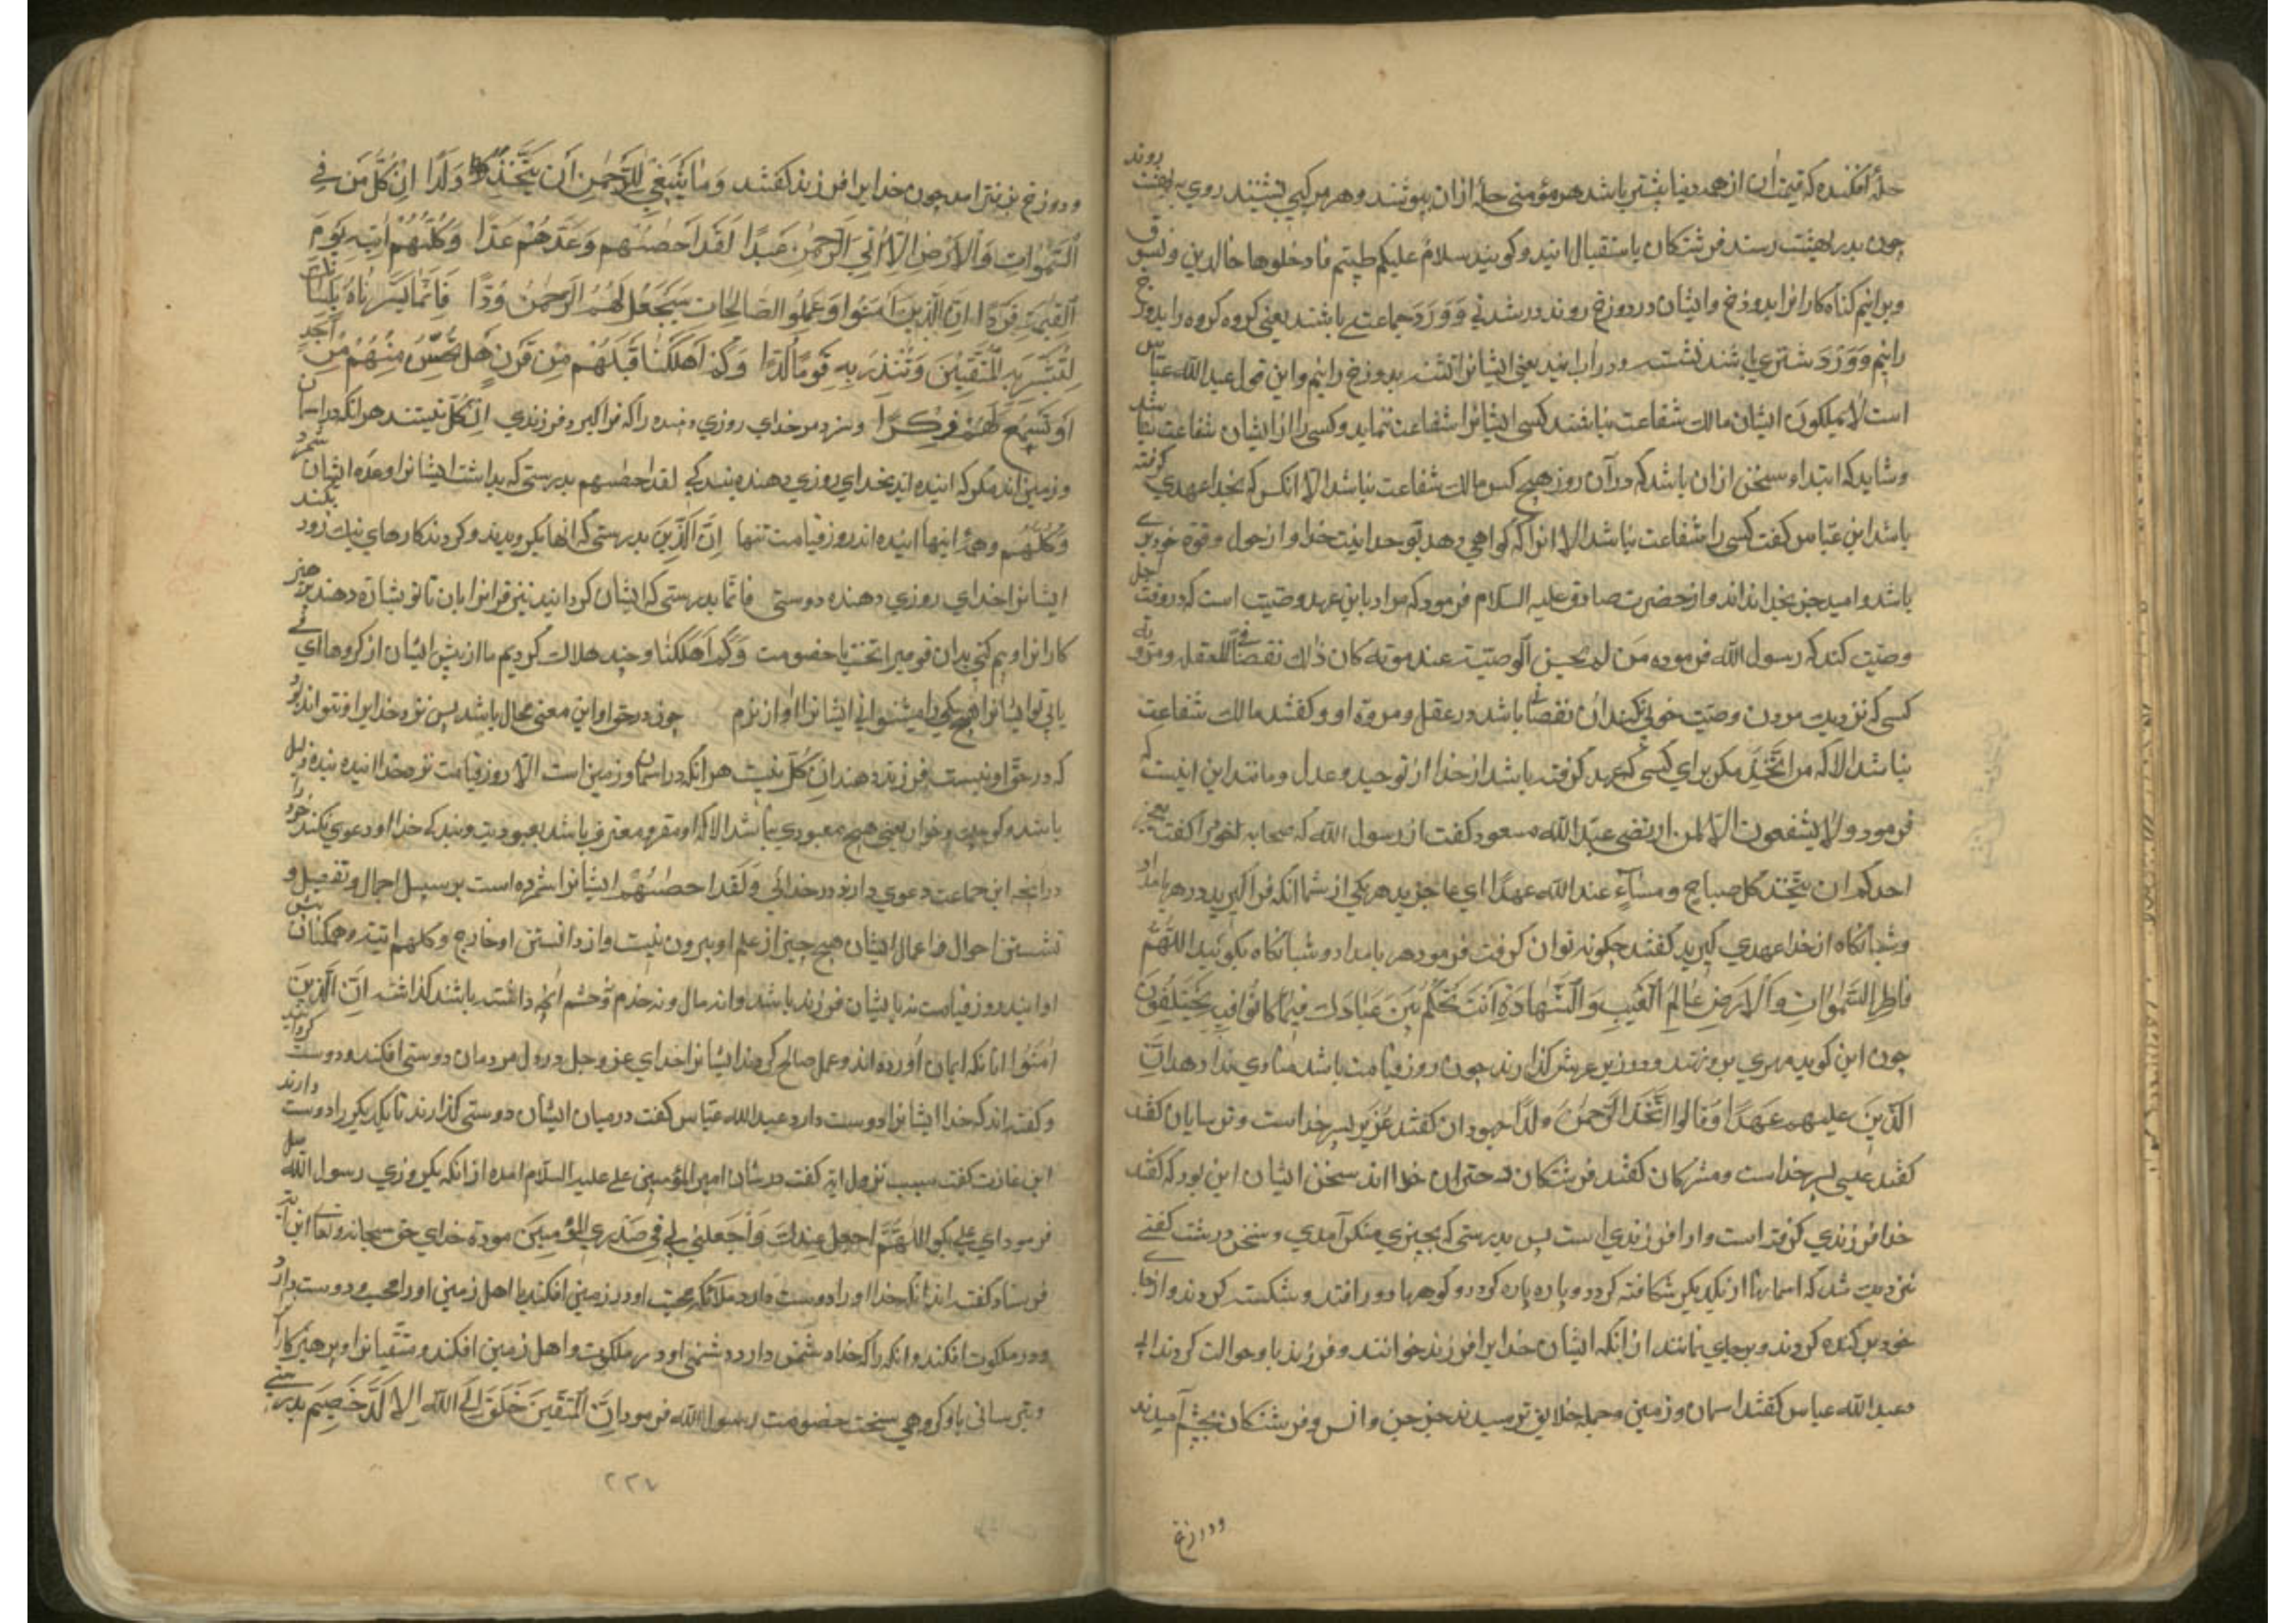 حلهٔ افکنده که قیمت آن از همه دنیا بیشتر باشد هر مؤمنی حله ازان بپوشند و هر مرکبی نشینند روی به بهشت روند
چون بدر بهشت رسند فرشتکان باستقبال ایند و کویند سلام علیکم طبتم فادخلوها خالدین و نسوق
و برانیم کناه کارانرا بدوزخ و ایشان در دوزخ روند و رشدنی و وَرَد جماعت باشند یعنی کروه کروه را بدوزخ
رانیم و وَرَد شتری باشند تشنه و در آب ایند یعنی ایشانرا تشنه بدوزخ رانیم و این قول عبد الله عباس
است لا یملکون ایشان مالك شفاعت نباشند کسی ایشانرا شفاعت ننماید و کسی را از ایشان شفاعت نباشد
و شاید که ابتداء سخن ازان باشد که در آن روز هیچ کس مالك شفاعت نباشد الا انکس که بخدا عهدی کرفته
باشد ابن عباس کفت کسی را شفاعت نباشد الا انرا که کواهی دهد بوحدانیت خدا و از حول و قوة خود بری
باشد و امید جز بخدا نداند و از حضرت صادق علیه السلام فرمود که مراد باین عهد وصیت است که در وقت اجل
وصیت کند که رسول الله فرموده من لم یحسن الوصیت عند موته کان ذلك نقصا فی للعقل و مروته
کسی که نزدیك مردن وصیت خوب نکند ان نقصانی باشد در عقل و مروة او و کفتند مالك شفاعت
نباشد الا که من اتخذ مکر برای کسی که عهد کرفته باشد از خدا از توحید و عدل و مانند این اینست که
فرمود و لا یشفعون الا لمن ارتضی عبد الله مسعود کفت از رسول الله که صحابه خود را کفت یعجز
احدکم ان یتخذ کل صباح و مساء عند الله عهدا ای عاجز ید هر یکی از شما انکه فراکیرید در هر بامداد
و شبانکاه از خدا عهدی کیرید کفتند چکونه توان کرفت فرمود هر بامداد و شبانکاه بکوئید اللهم
فاطر السموات و الارض عالم الغیب و الشهادة انت تحکم بین عبادك فیما کانوا فیه یختلفون
چون این کوید مهری برو نهند و در زیر عرش کذارند چون روز قیامت باشد منادی ندا دهد ان
الذین علیهم عهدا و قالوا اتخذ الرحمن ولدا جهودان کفتند عزیر پسر خداست و ترسایان کفتند
کفتند عیسی پسر خداست و مشرکان کفتند فرشتکان دختران خدا اند سخن ایشان این بود که کفتند
خدا فرزندی کرفته است و او را فرزندی است پس بدرستی که بچیزی منکر آمدی و سخن درشت کفتی
نزدیك شد که اسمانها از یکدیکر شکافته کردد و پاره پاره کردد و کوهها دور افتد و شکسته کردند و از جای
خود برکنده کردند و برجای نمانند از انکه ایشان خدایرا فرزند خوانند و فرزند باو حوالت کردند
عبد الله عباس کفتند اسمان و زمین و جمله خلایق ترسیدند جز جن و انس و فرشتکان بخشم آمدند
و دوزخ
و دوزخ بزینترا مد چون خدایرا فرزند کفتند و ما ینبغی للرحمن ان یتخذ ولدا ان کل من فی
السموات و الارض الا اتی الرحمن عبدا لقد احصیهم و عدهم عدا و کلهم اتیه یوم
القیمة فردا ان الذین امنوا و عملوا الصالحات سیجعل لهم الرحمن ودا فانما یسرناه بلسانك
لتبشر به المتقین و تنذر به قوما لدا و کم اهلکنا قبلهم من قرن هل تحس منهم من احد
او تسمع لهم رکزا و نسزد مر خدای روزی دهنده را که فراکیرد فرزندی ان کل نیستند هر انکه در اسمان
و زمین اند مکر که اینده اند بخدای روزی دهنده بندکی لقد احصیهم بدرستی که بداشت ایشانرا و عده ایشان شمرد
و کلهم و همه اینها اینده اند روز قیامت تنها ان الذین بدرستی که انها بکرویدند و کردند کارهای نیك زود بکند
ایشانرا خدای روزی دهنده دوستی فانما بدرستی که ایشان کردانیدیم قرانرا بزبان تا تو بشارة دهند پرهیز
کارانرا و بیم کنی بدان قومیرا سخت با خصومت و کم اهلکنا و چند هلاك کردیم ما از پیش ایشان از کروهای
یابی تو ایشانرا هیچ یکی یا میشنوانی ایشانرا اواز نرم چون در حق او این معنی محال باشد پس نزد خدایرا و نتواند بود
که در حق او نیست فرزند دهند ان کل نیست هر انکه در اسمان و زمین است الا روز قیامت نزد خدا اینده بنده ذلیل
باشد و کوچك و خوار یعنی هیچ معبودی نباشد الا که او مقر و معترف باشد بعبودیت و بندکی خدا و دعوی نکند خود را
در انچه این جماعت دعوی دارند در خدائی و لقد احصیهم ایشانرا شمرده است بر سبیل اجمال و تفصیل و
احوال و اعمال ایشان هیچ چیز از علم او بیرون نیست و از دانستن او خارج و کلهم اتیه و همکنان پیش
او ایند روز قیامت نه بایشان فرزند باشد و نه مال و نه خدم و حشم انچه داشته باشند کذاشته ان الذین
امنوا انانکه ایمان آورده اند و عمل صالح کردند ایشانرا خدای عز و جل در دل مردمان دوستی افکند و دوست کرداند
و کفته اند که خدا ایشانرا دوست دارد عبد الله عباس کفت در میان ایشان دوستی کذارند تا یکدیکر را دوست دارند
کفت سبب نزول ایة کفت در شان امیر المؤمنین علی علیه السلام امده از انکه یکروزی رسول الله
فرمود ای علی بکو اللهم اجعل عندك و اجعلنی لی فی صدری المؤمنین مودة خدای حق سبحانه و تعالی این ایة
فرستاد کفته اند انکه خدا او را دوست دارد ملائکه محبت او در زمین افکند تا اهل زمین او را محب و دوست دارد
و در ملکوت افکند و انکه را که خدا دشمن دارد دشمنی او در ملکوت و اهل زمین افکند و متقیانرا و پرهیزکارانرا
و بترسانی باو کروهی سخت خصومت رسول الله فرمود ان المتقین خلق الی الله الا لد خصیم
٢٢٤